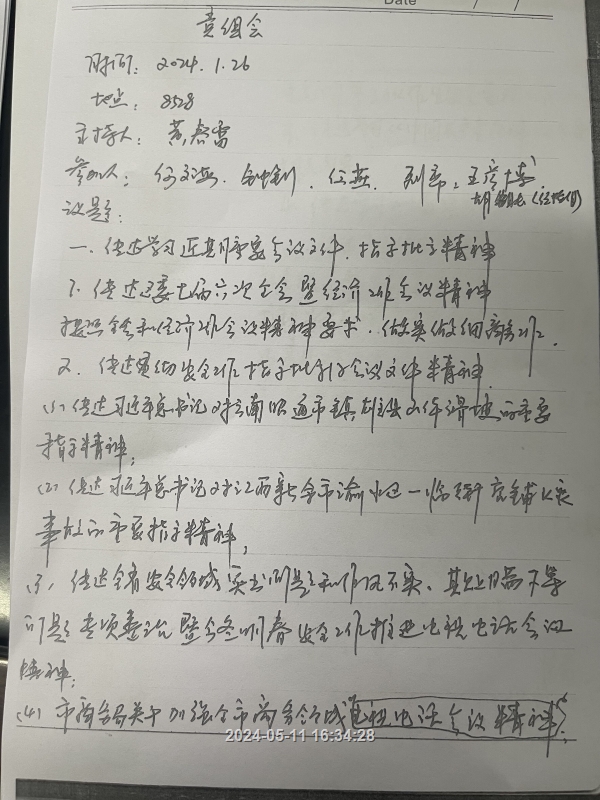 Date / /
党组会
时间：2024.1.26
地点：8528
主持人：黄
参加人：何文海、任燕、王彦博
议题：
一、传达学习近期重要会议文件、指示批示精神
1、传达区委七届六次全会暨经济工作会议精神
按照全会和经济工作会议精神要求，做实做细商务工作。
2、传达贯彻安全工作指示批示会议文件精神
(1)传达习近平总书记对云南昭通市镇雄县山体滑坡的重要
指示精神；
(2)传达习近平总书记对江西新余市渝水区一临街店铺火灾
事故的重要指示精神；
(3)传达全省安全领域突出问题和情况不实、
问题专项整治暨今冬明春安全工作推进电视电话会议
精神；
(4)市商务局关于加强全市商务领域电视电话会议精神；
2024-05-11 16:34:28